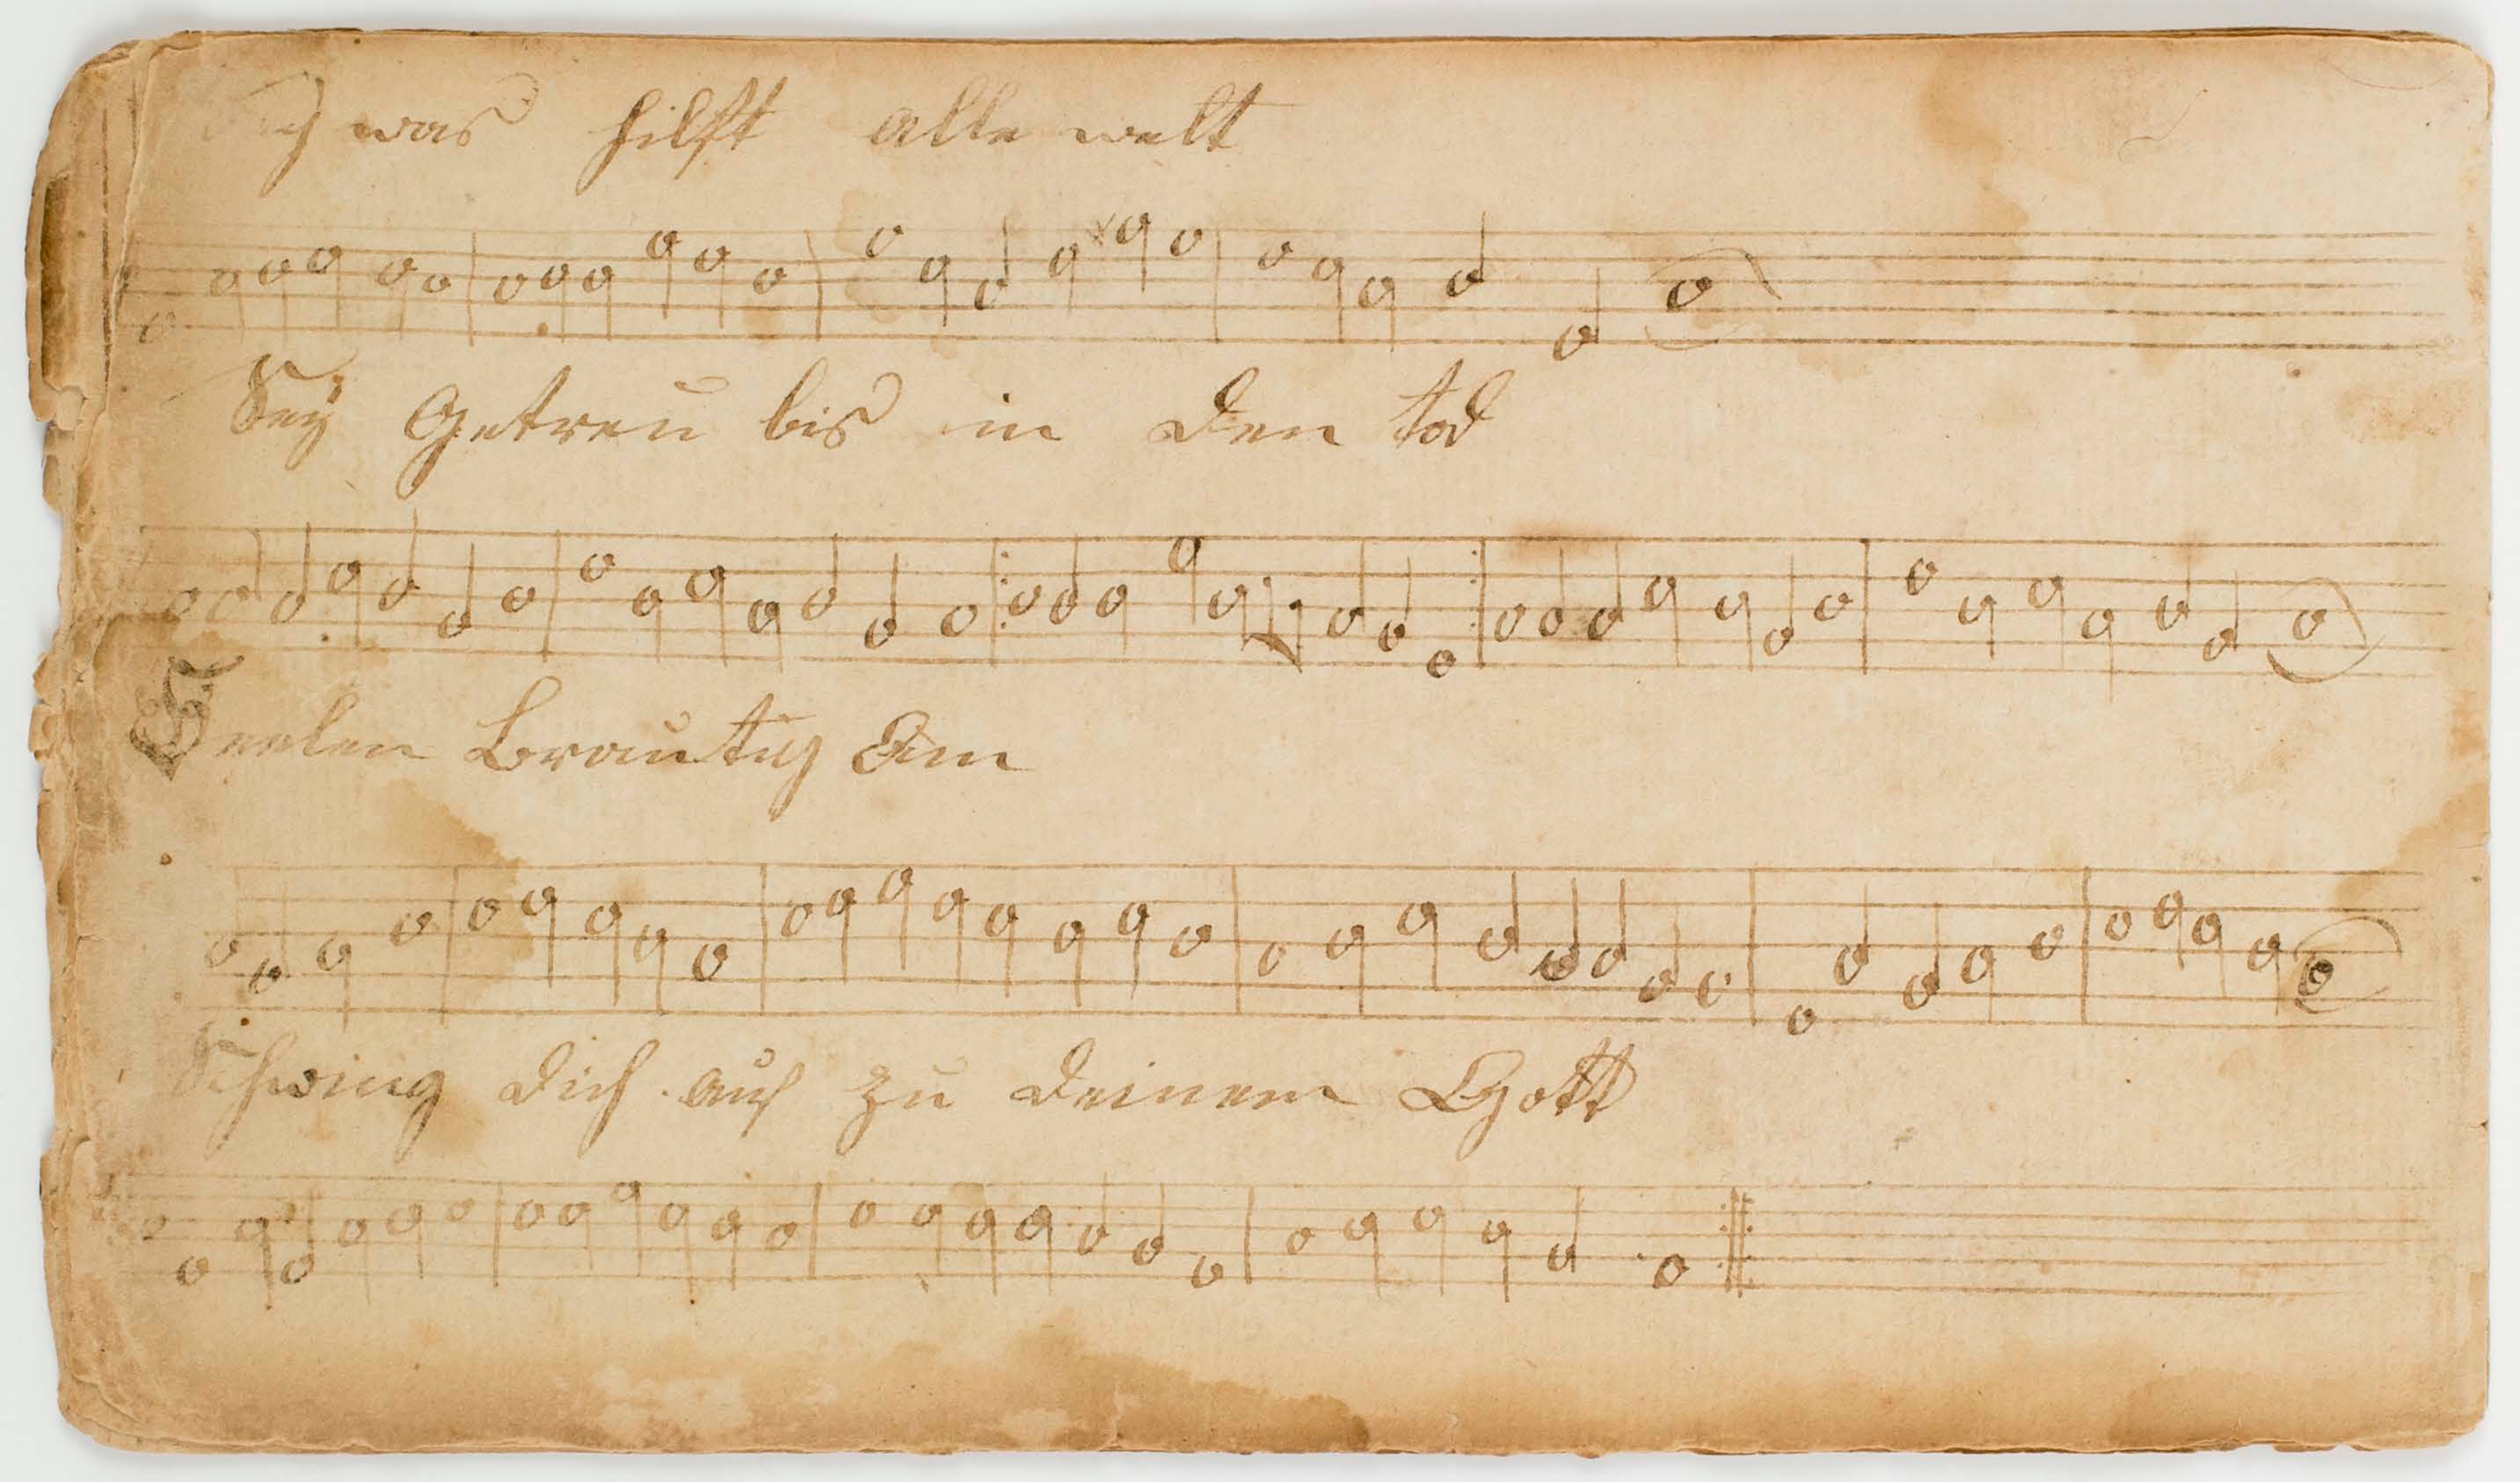 Sag was hilft alle welt
Sey Getreu bis in den tod
Seelen Brautig Am
Schwing dich auf zu deinem Gott